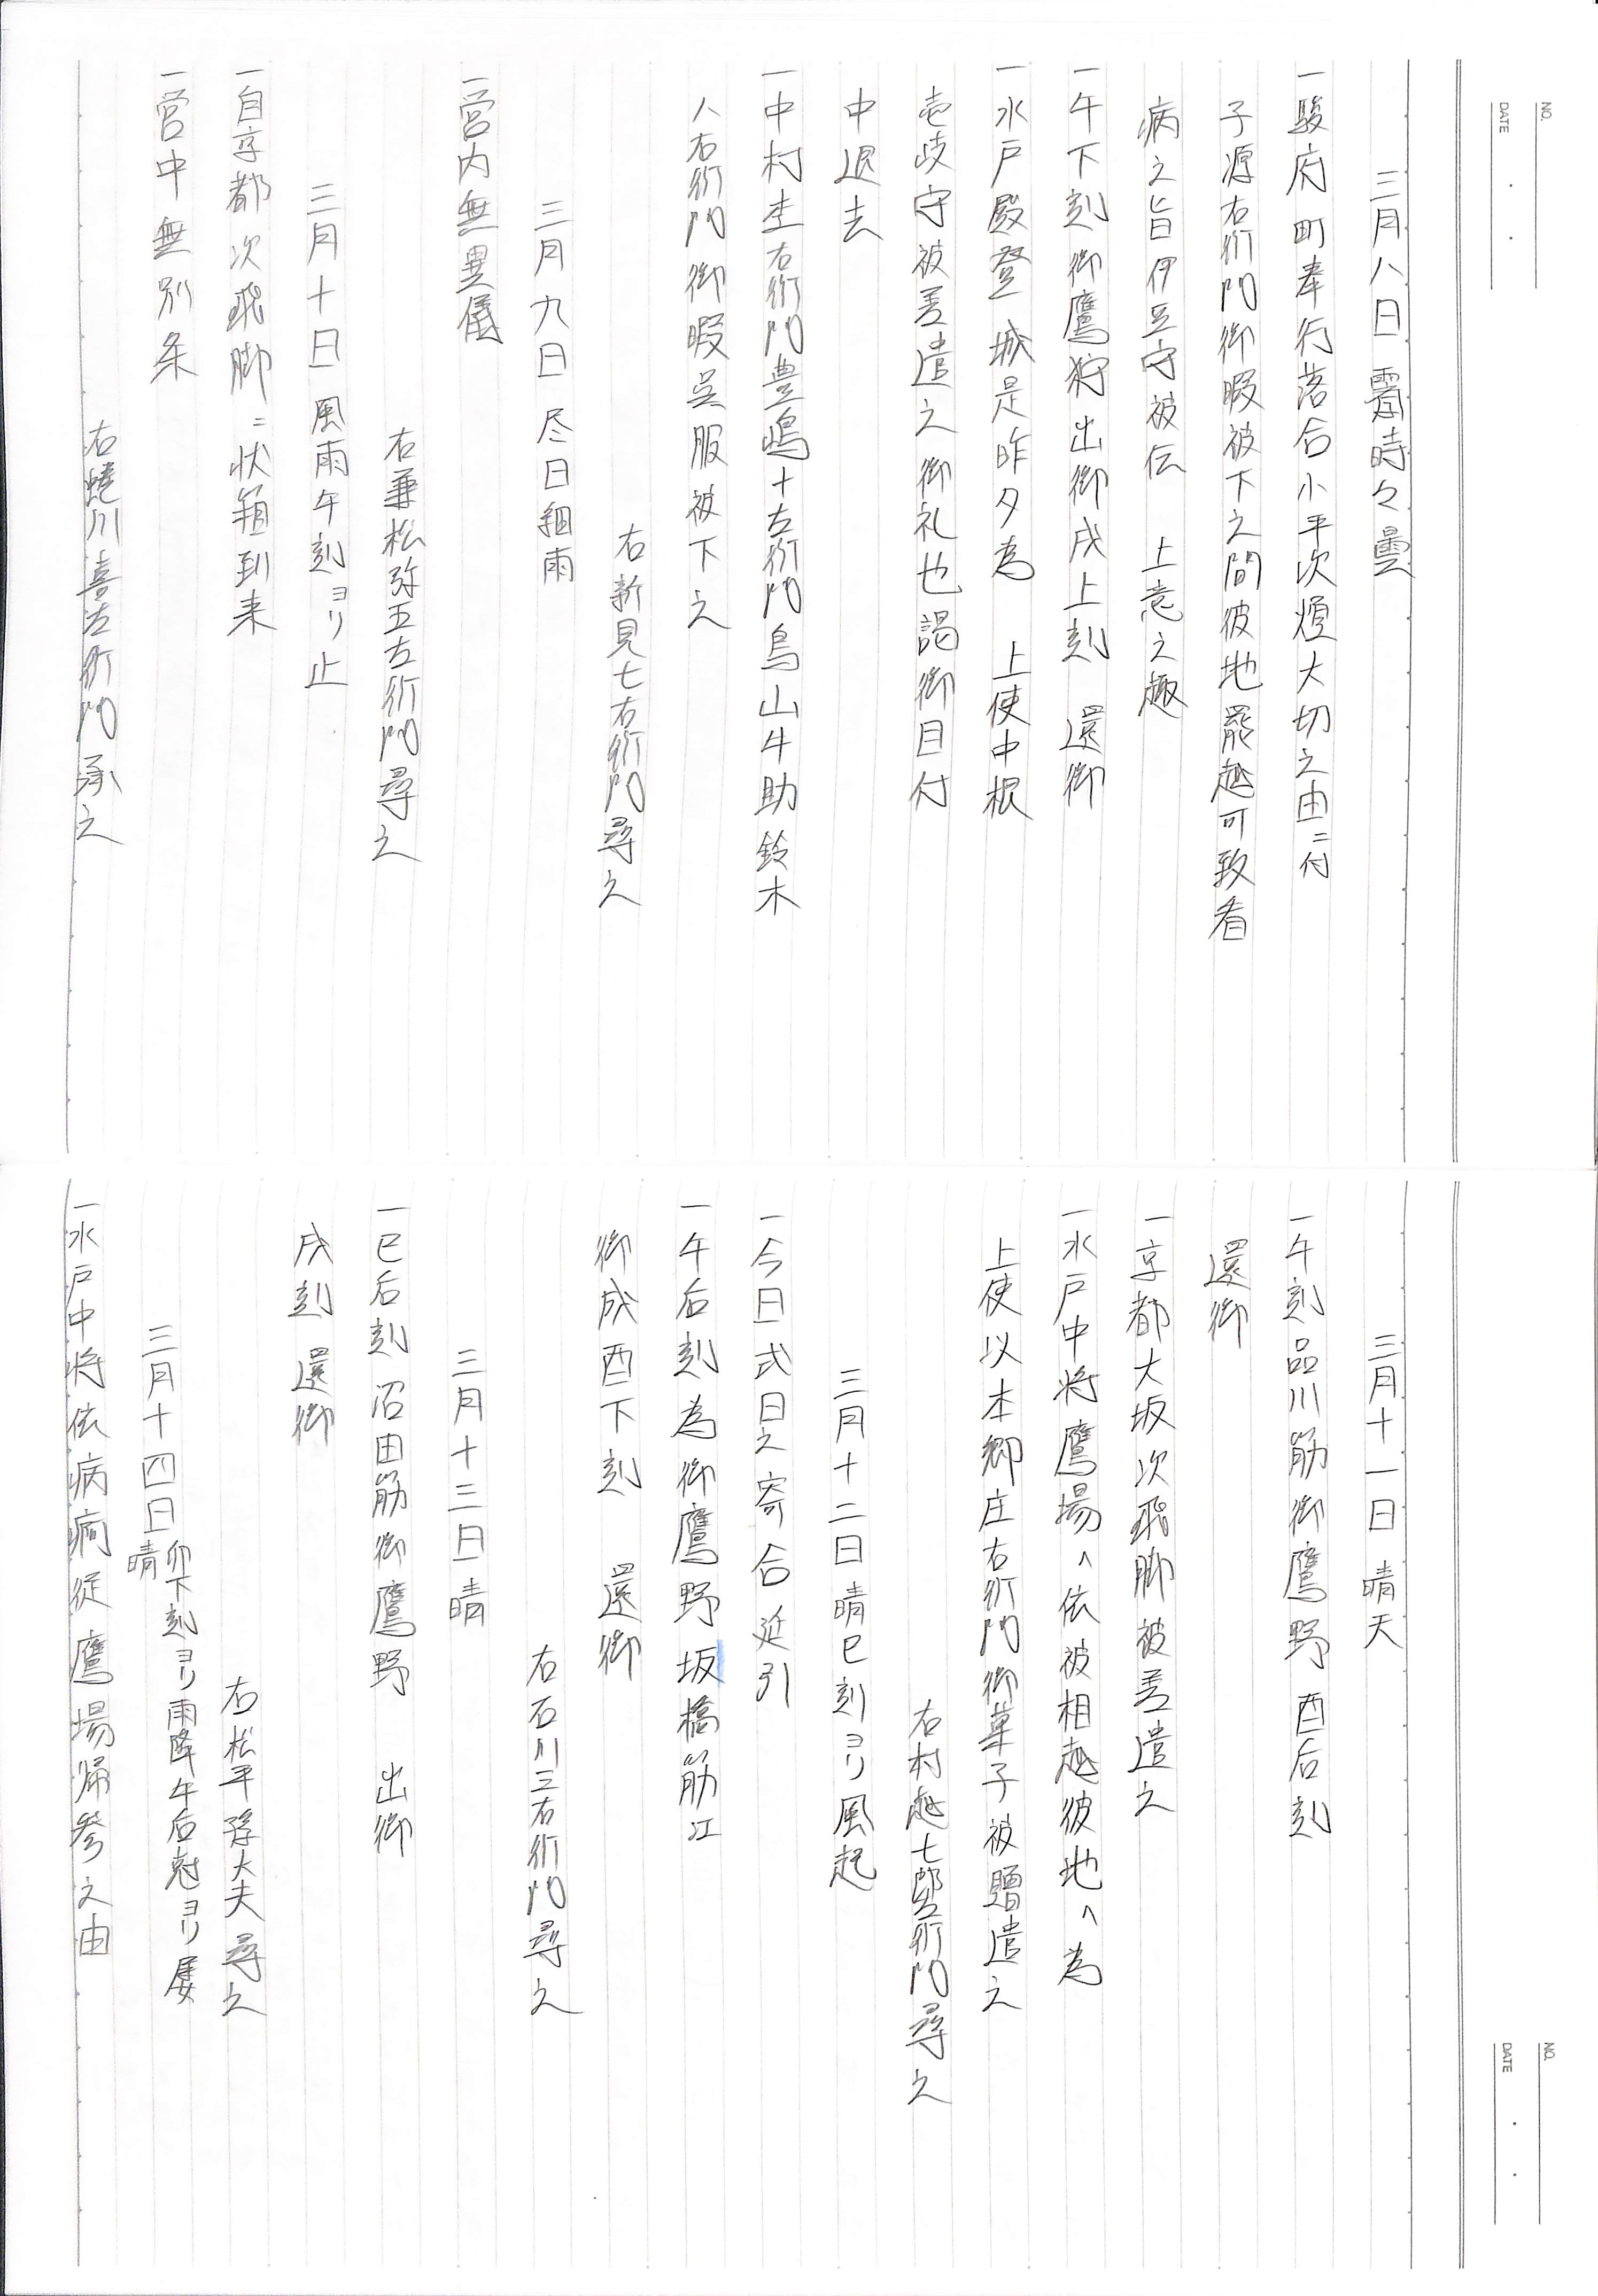 NO.
DATE
三月八日 霽時々曇
一駿府町奉行落合小平次煩大切之由ニ付
子源右衛門御暇被下之間彼地罷越可致看
病之旨伊豆守被伝 上意之趣
一午下刻御鷹狩出御戌上刻 還御
一水戸殿登 城是昨夕為 上使中根
壱岐守被差遣之御礼也謁御目付
中退去
一中村杢右衛門豊嶋十左衛門鳥山牛助鈴木
八右衛門御暇呉服被下之
右新見七右衛門尋之
三月九日 尽日細雨
一営内無異儀
右兼松弥五左衛門尋之
三月十日 風雨午刻ヨリ止
一自京都次飛脚ニ状箱到来
一営中無別条
右蜷川喜左衛門承之
NO.
DATE
三月十一日 晴天
一午刻品川筋御鷹野 酉后刻
還御
一京都大坂次飛脚被差遣之
一水戸中将鷹場へ依被相越彼地へ為
上使以本郷庄右衛門御菓子被贈遣之
右村越七郎左衛門尋之
三月十二日 晴巳刻ヨリ風起
一今日式日之寄合延引
一午后刻為御鷹野坂橋筋江
御成酉下刻 還御
右石川三右衛門尋之
三月十三日 晴
一巳后刻沼田筋御鷹野 出御
戌刻 還御
右松平隼大夫尋之
三月十四日 卯下刻ヨリ雨降午后尅ヨリ屡
晴
一水戸中将依病痾従鷹場帰参之由